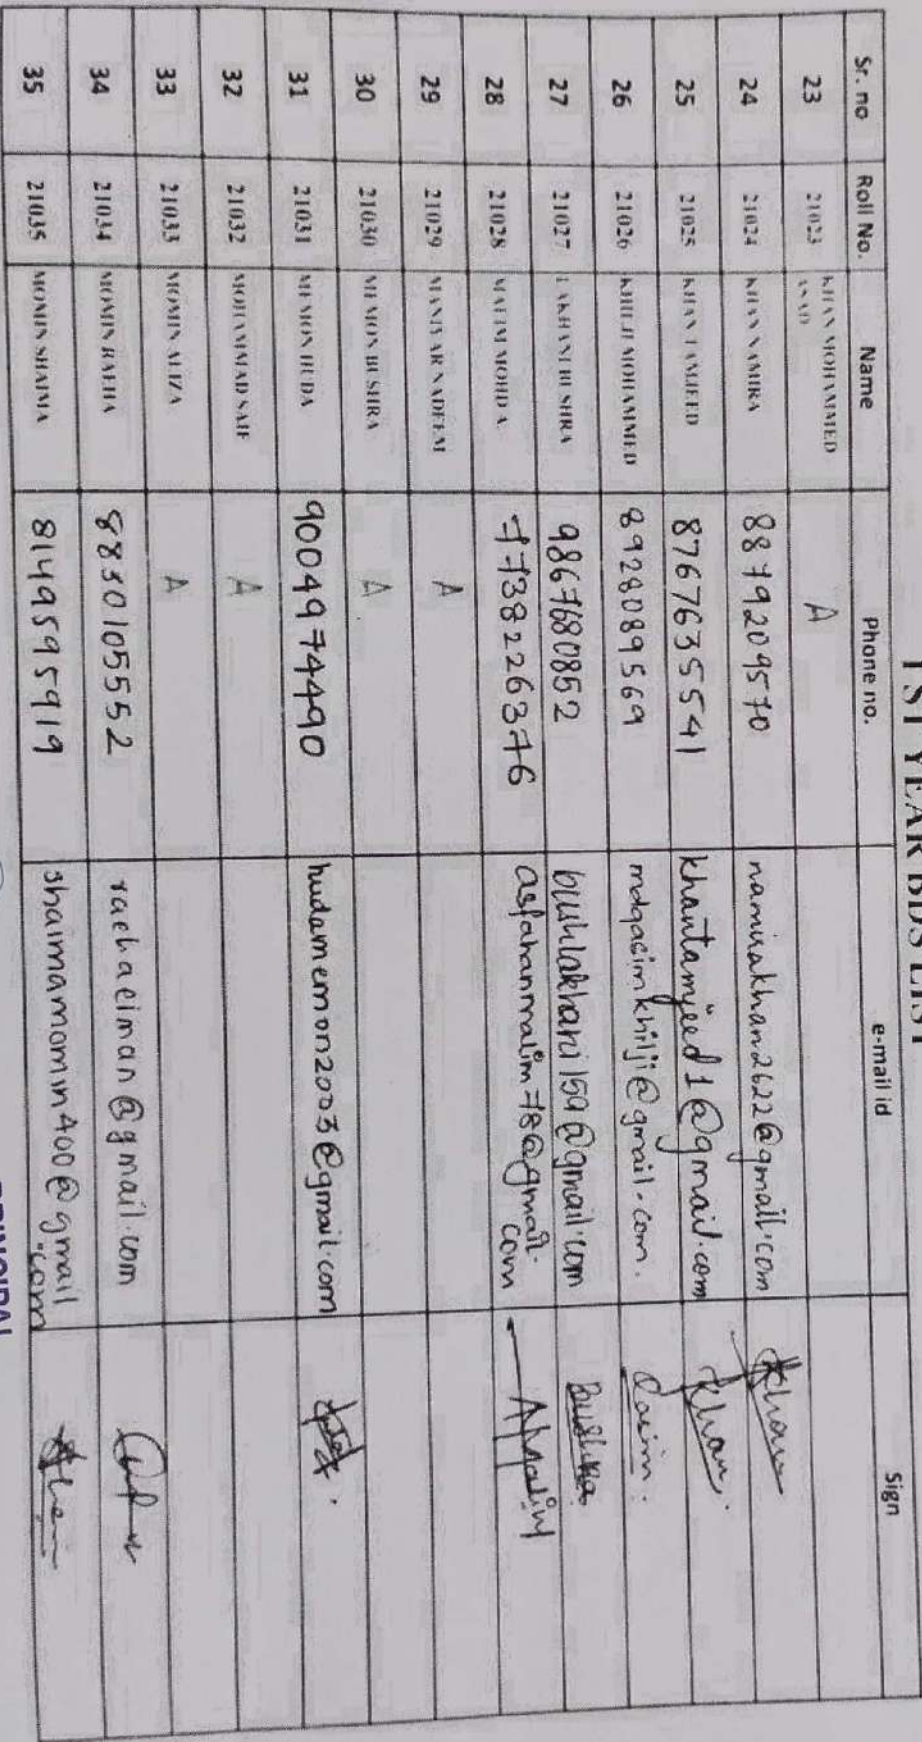 I ST YEAR BDS LIST
Sr. no Roll No. Name Phone no. e-mail id Sign
23 21023 KHAN MOHAMMED A
24 21024 KHAN NAMIRA 8879209570 namirakhan2622@gmail.com Khan
25 21025 KHAN TAMJEED 8767635541 khantamjeed1@gmail.com Khan
26 21026 KHILJI MOHAMMED 8928089569 mdqasimkhilji@gmail.com. Qasim
27 21027 LAKHANI BUSHRA 9867680852 bushlakhani159@gmail.com Bushra
28 21028 MALIM MOHD A 7738226376 asfahanmalim78@gmail.
com AMalim
29 21029 MANIYAR NADEEM A
30 21030 MEMON BUSHRA A
31 21031 MEMON HUDA 9004974490 hudamemon2003@gmail.com
32 21032 MOHAMMAD SAIF A
33 21033 MOMIN ALIZA A
34 21034 MOMIN RAEHA 8830105552 raehaeiman@gmail.com
35 21035 MOMIN SHAIMA 8149595919 shaimamomin400@gmail
.com
PRINCIPAL